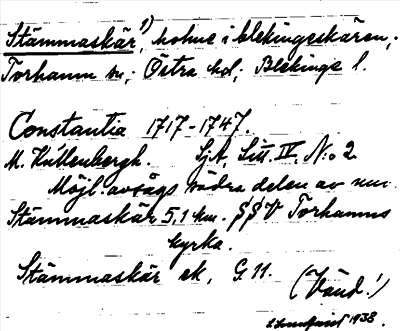 Stämmaskär¹⁾, holme i blekingeskären,
Torhamn sn; Östra hd; Blekinge l.
Constantia 1717-1747.
M. Küllenbergh. SjA, Litt. IV, N:o 2
Möjl. avsågs södra delen av nuv.
Stämmaskär 5,1 km. SSV Torhamns
kyrka.
Stämmaskär ek, G. 11.
(Vänd!)
Lundqvist 1938.